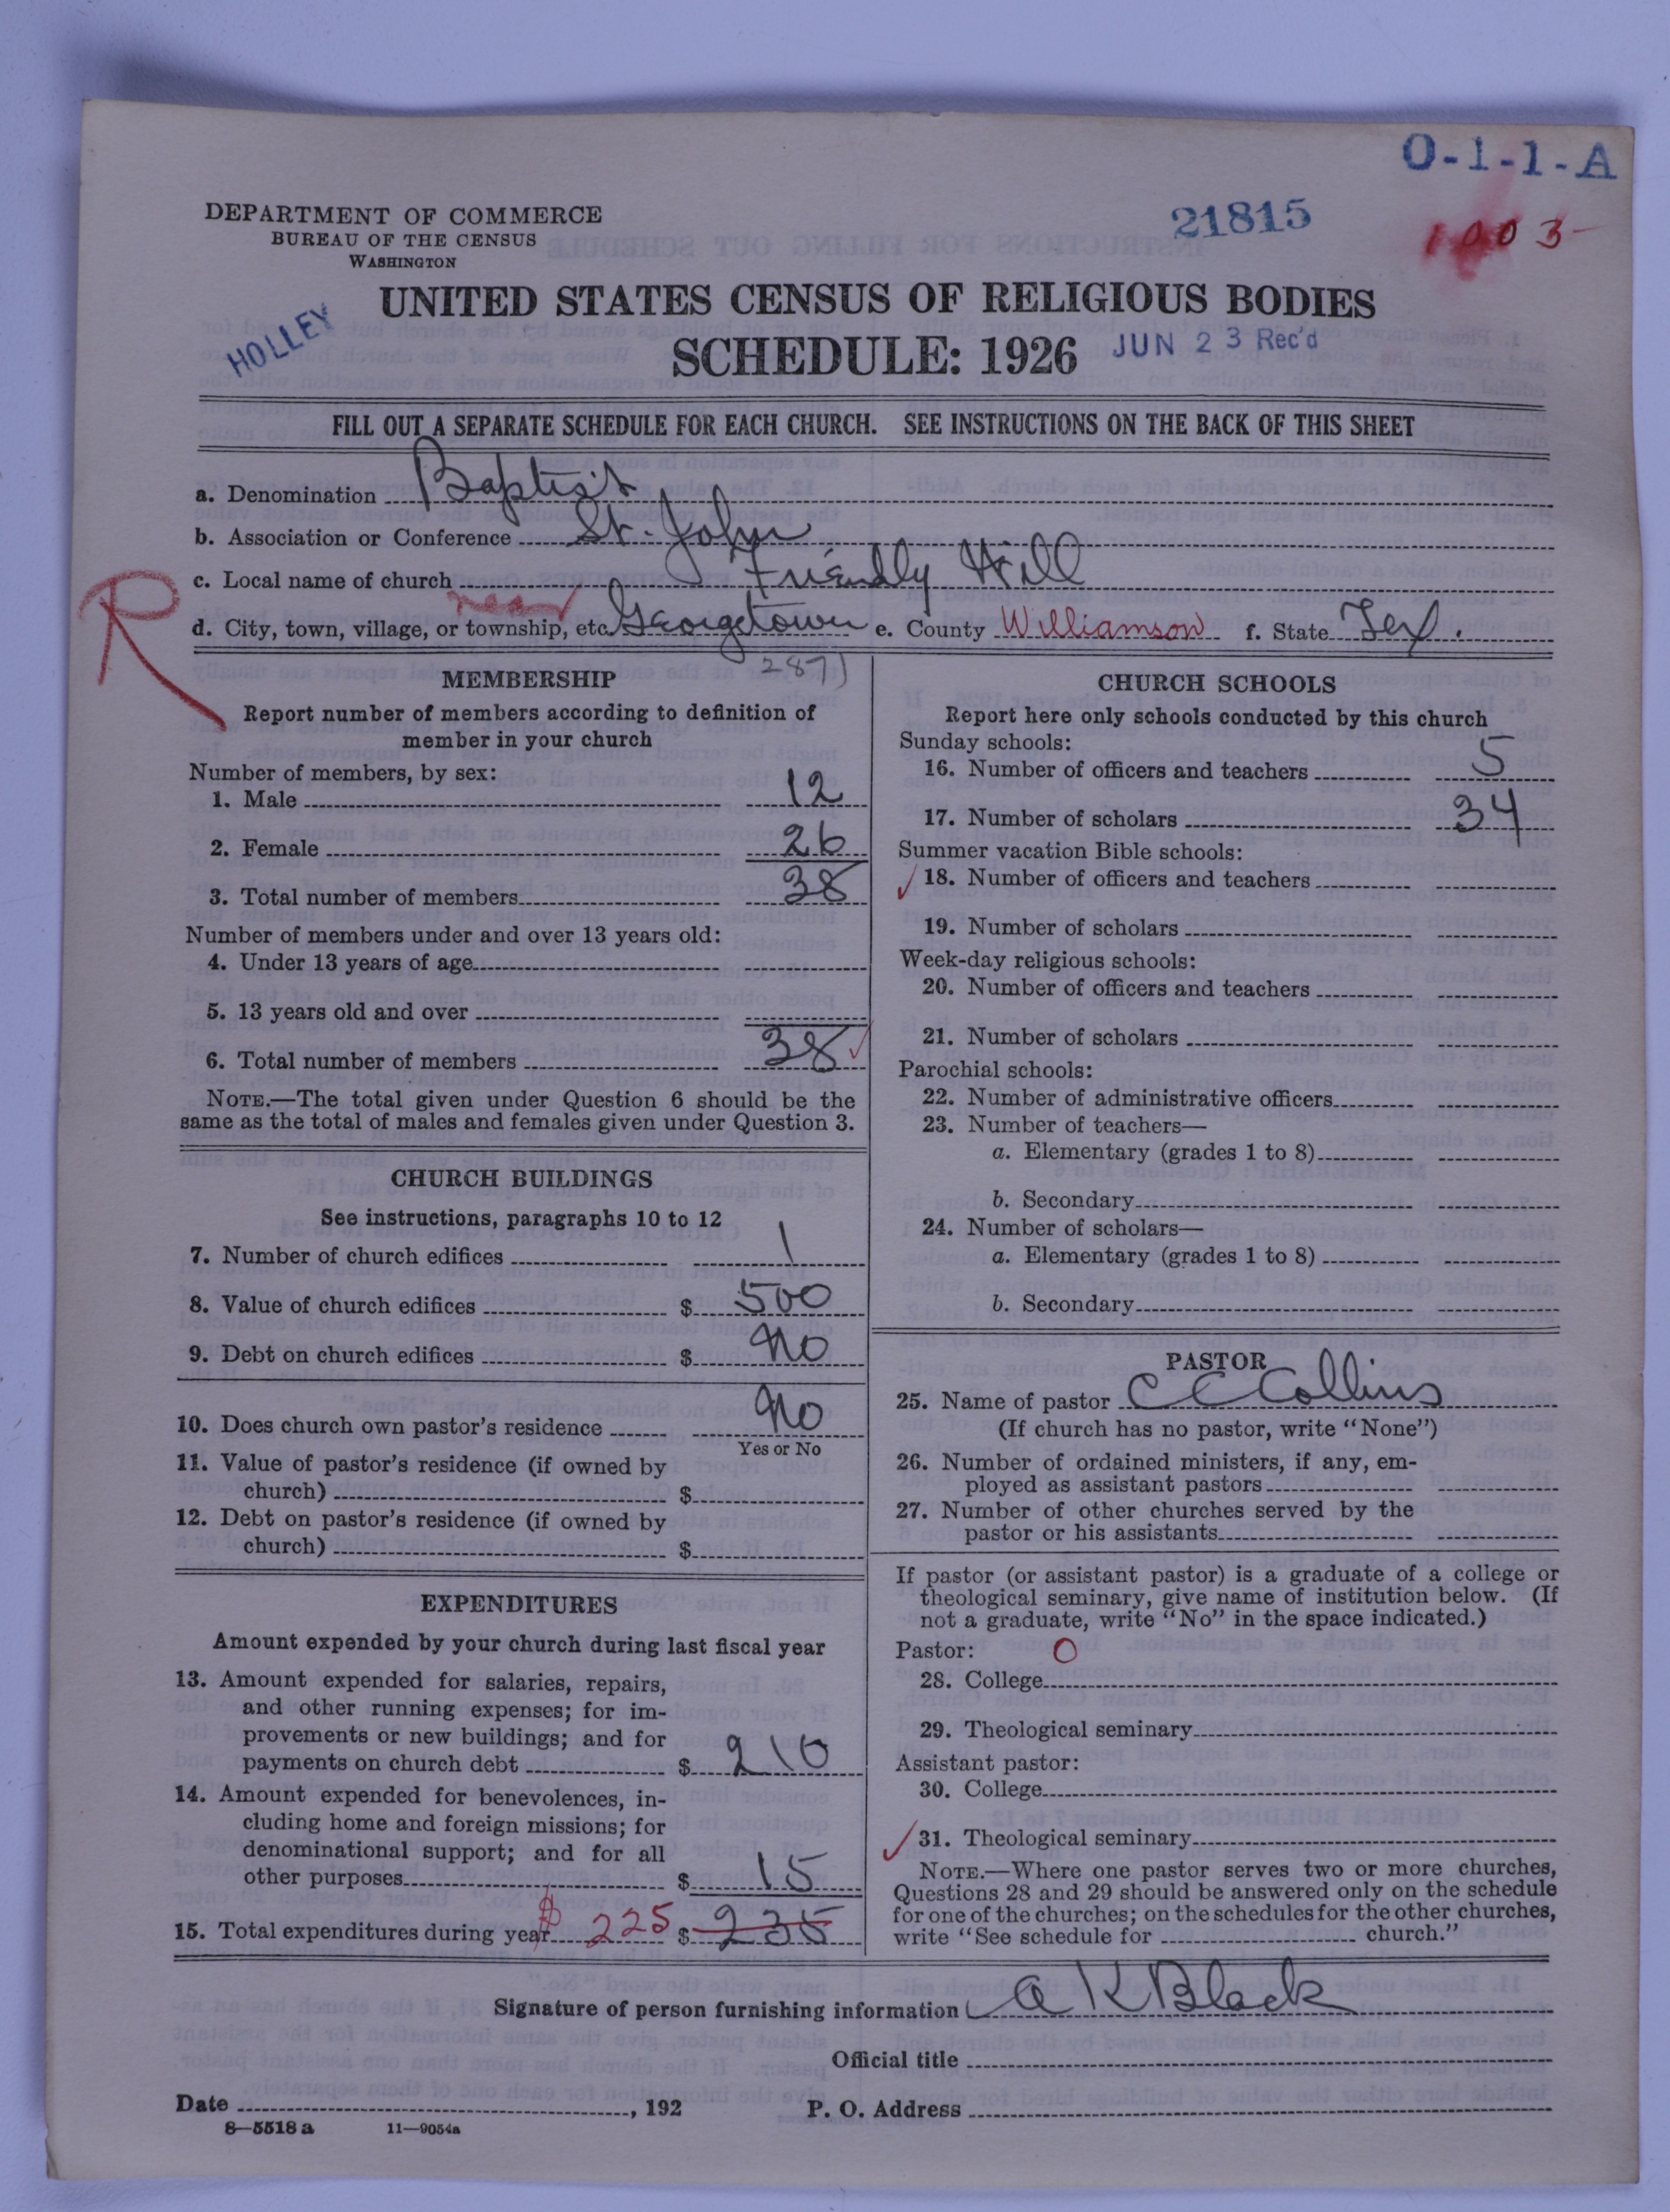 O-1-1-A
DEPARTMENT OF COMMERCE
BUREAU OF THE CENSUS
WASHINGTON
21815
1003
UNITED STATES CENSUS OF RELIGIOUS BODIES
HOLLEY
SCHEDULE: 1926
JUN 23 Rec'd
FILL OUT A SEPARATE SCHEDULE FOR EACH CHURCH. SEE INSTRUCTIONS ON THE BACK OF THIS SHEET
a. Denomination Baptist
b. Association or Conference St. John
c. Local name of church Friendly Hill
R
near
d. City, town, village, or township, etc. Georgetown e. County Williamson f. State Tex.
MEMBERSHIP
Report number of members according to definition of
member in your church
Number of members, by sex:
1. Male 12
2. Female 26
3. Total number of members 38
Number of members under and over 13 years old:
4. Under 13 years of age
5. 13 years old and over
6. Total number of members 38
NOTE.—The total given under Question 6 should be the
same as the total of males and females given under Question 3.
CHURCH BUILDINGS
See instructions, paragraphs 10 to 12
7. Number of church edifices 1
8. Value of church edifices $ 500
9. Debt on church edifices $ No
10. Does church own pastor's residence No
Yes or No
11. Value of pastor's residence (if owned by
church) $
12. Debt on pastor's residence (if owned by
church) $
EXPENDITURES
Amount expended by your church during last fiscal year
13. Amount expended for salaries, repairs,
and other running expenses; for im-
provements or new buildings; and for
payments on church debt $ 210
14. Amount expended for benevolences, in-
cluding home and foreign missions; for
denominational support; and for all
other purposes $ 15
15. Total expenditures during year $ 225 $ 235
CHURCH SCHOOLS
Report here only schools conducted by this church
Sunday schools:
16. Number of officers and teachers 5
17. Number of scholars 34
Summer vacation Bible schools:
18. Number of officers and teachers
19. Number of scholars
Week-day religious schools:
20. Number of officers and teachers
21. Number of scholars
Parochial schools:
22. Number of administrative officers
23. Number of teachers—
a. Elementary (grades 1 to 8)
b. Secondary
24. Number of scholars—
a. Elementary (grades 1 to 8)
b. Secondary
PASTOR
25. Name of pastor C C Collins
(If church has no pastor, write "None")
26. Number of ordained ministers, if any, em-
ployed as assistant pastors
27. Number of other churches served by the
pastor or his assistants
If pastor (or assistant pastor) is a graduate of a college or
theological seminary, give name of institution below. (If
not a graduate, write "No" in the space indicated.)
Pastor: O
28. College
29. Theological seminary
Assistant pastor:
30. College
31. Theological seminary
NOTE.—Where one pastor serves two or more churches,
Questions 28 and 29 should be answered only on the schedule
for one of the churches; on the schedules for the other churches,
write "See schedule for church."
Signature of person furnishing information A K Black
Official title
Date , 192 P. O. Address
8—5518 a 11—9054a